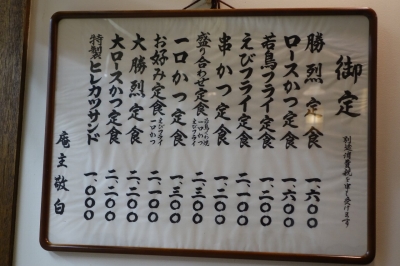 御定
別途消費税を申し受けます
勝烈定食 一、六〇〇
ロースかつ定食 一、六〇〇
若鳥フライ定食 一、二〇〇
えびフライ定食
串かつ定食 一、二〇〇
盛り合わせ定食 一口かつ えびフライ 二、三〇〇
一口かつ定食 一、三〇〇
お好み定食 えびフライ 一口かつ
大勝烈定食 二、二〇〇
大ロースかつ定食 二、二〇〇
特製ヒレカツサンド 一、〇〇〇
庵主敬白